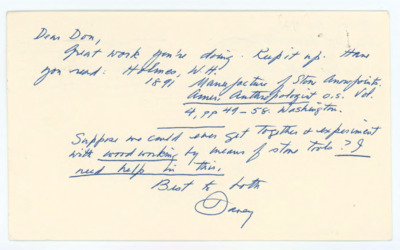 Dear Don,
Great work you're doing. Keep it up. Have
you read: Holmes, W.H.
1891 Manufacture of Stone Arrowpoints.
Amer. Anthropologist o.s. Vol.
4, pp 49-58. Washington.
Suppose we could ever get together & experiment
with wood working by means of stone tools? I
need help in this.
Best to both